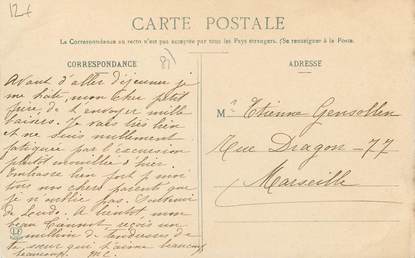 12+
CARTE POSTALE
La Correspondance au recto n'est pas acceptée par tous les Pays étrangers. (Se renseigner à la Poste.
CORRESPONDANCE
ADRESSE
Avant d'aller déjeuner je
me hâte, mon cher petit
frère de t'envoyer mille
caisses. Je vais très bien
et ne suis nullement
fatiguée par l'excursion
plutôt mouillée d'hier.
Embrasse bien fort p moi
tous nos chers parents que
je n'oublie pas. Souvenir
de Loude. A bientôt mon
reçois un
million de tendresses de
ta sœur qui t'aime beaucoup
beaucoup. M.C.
Mr Etienne Gensollen
Rue Dragon-77
Marseille